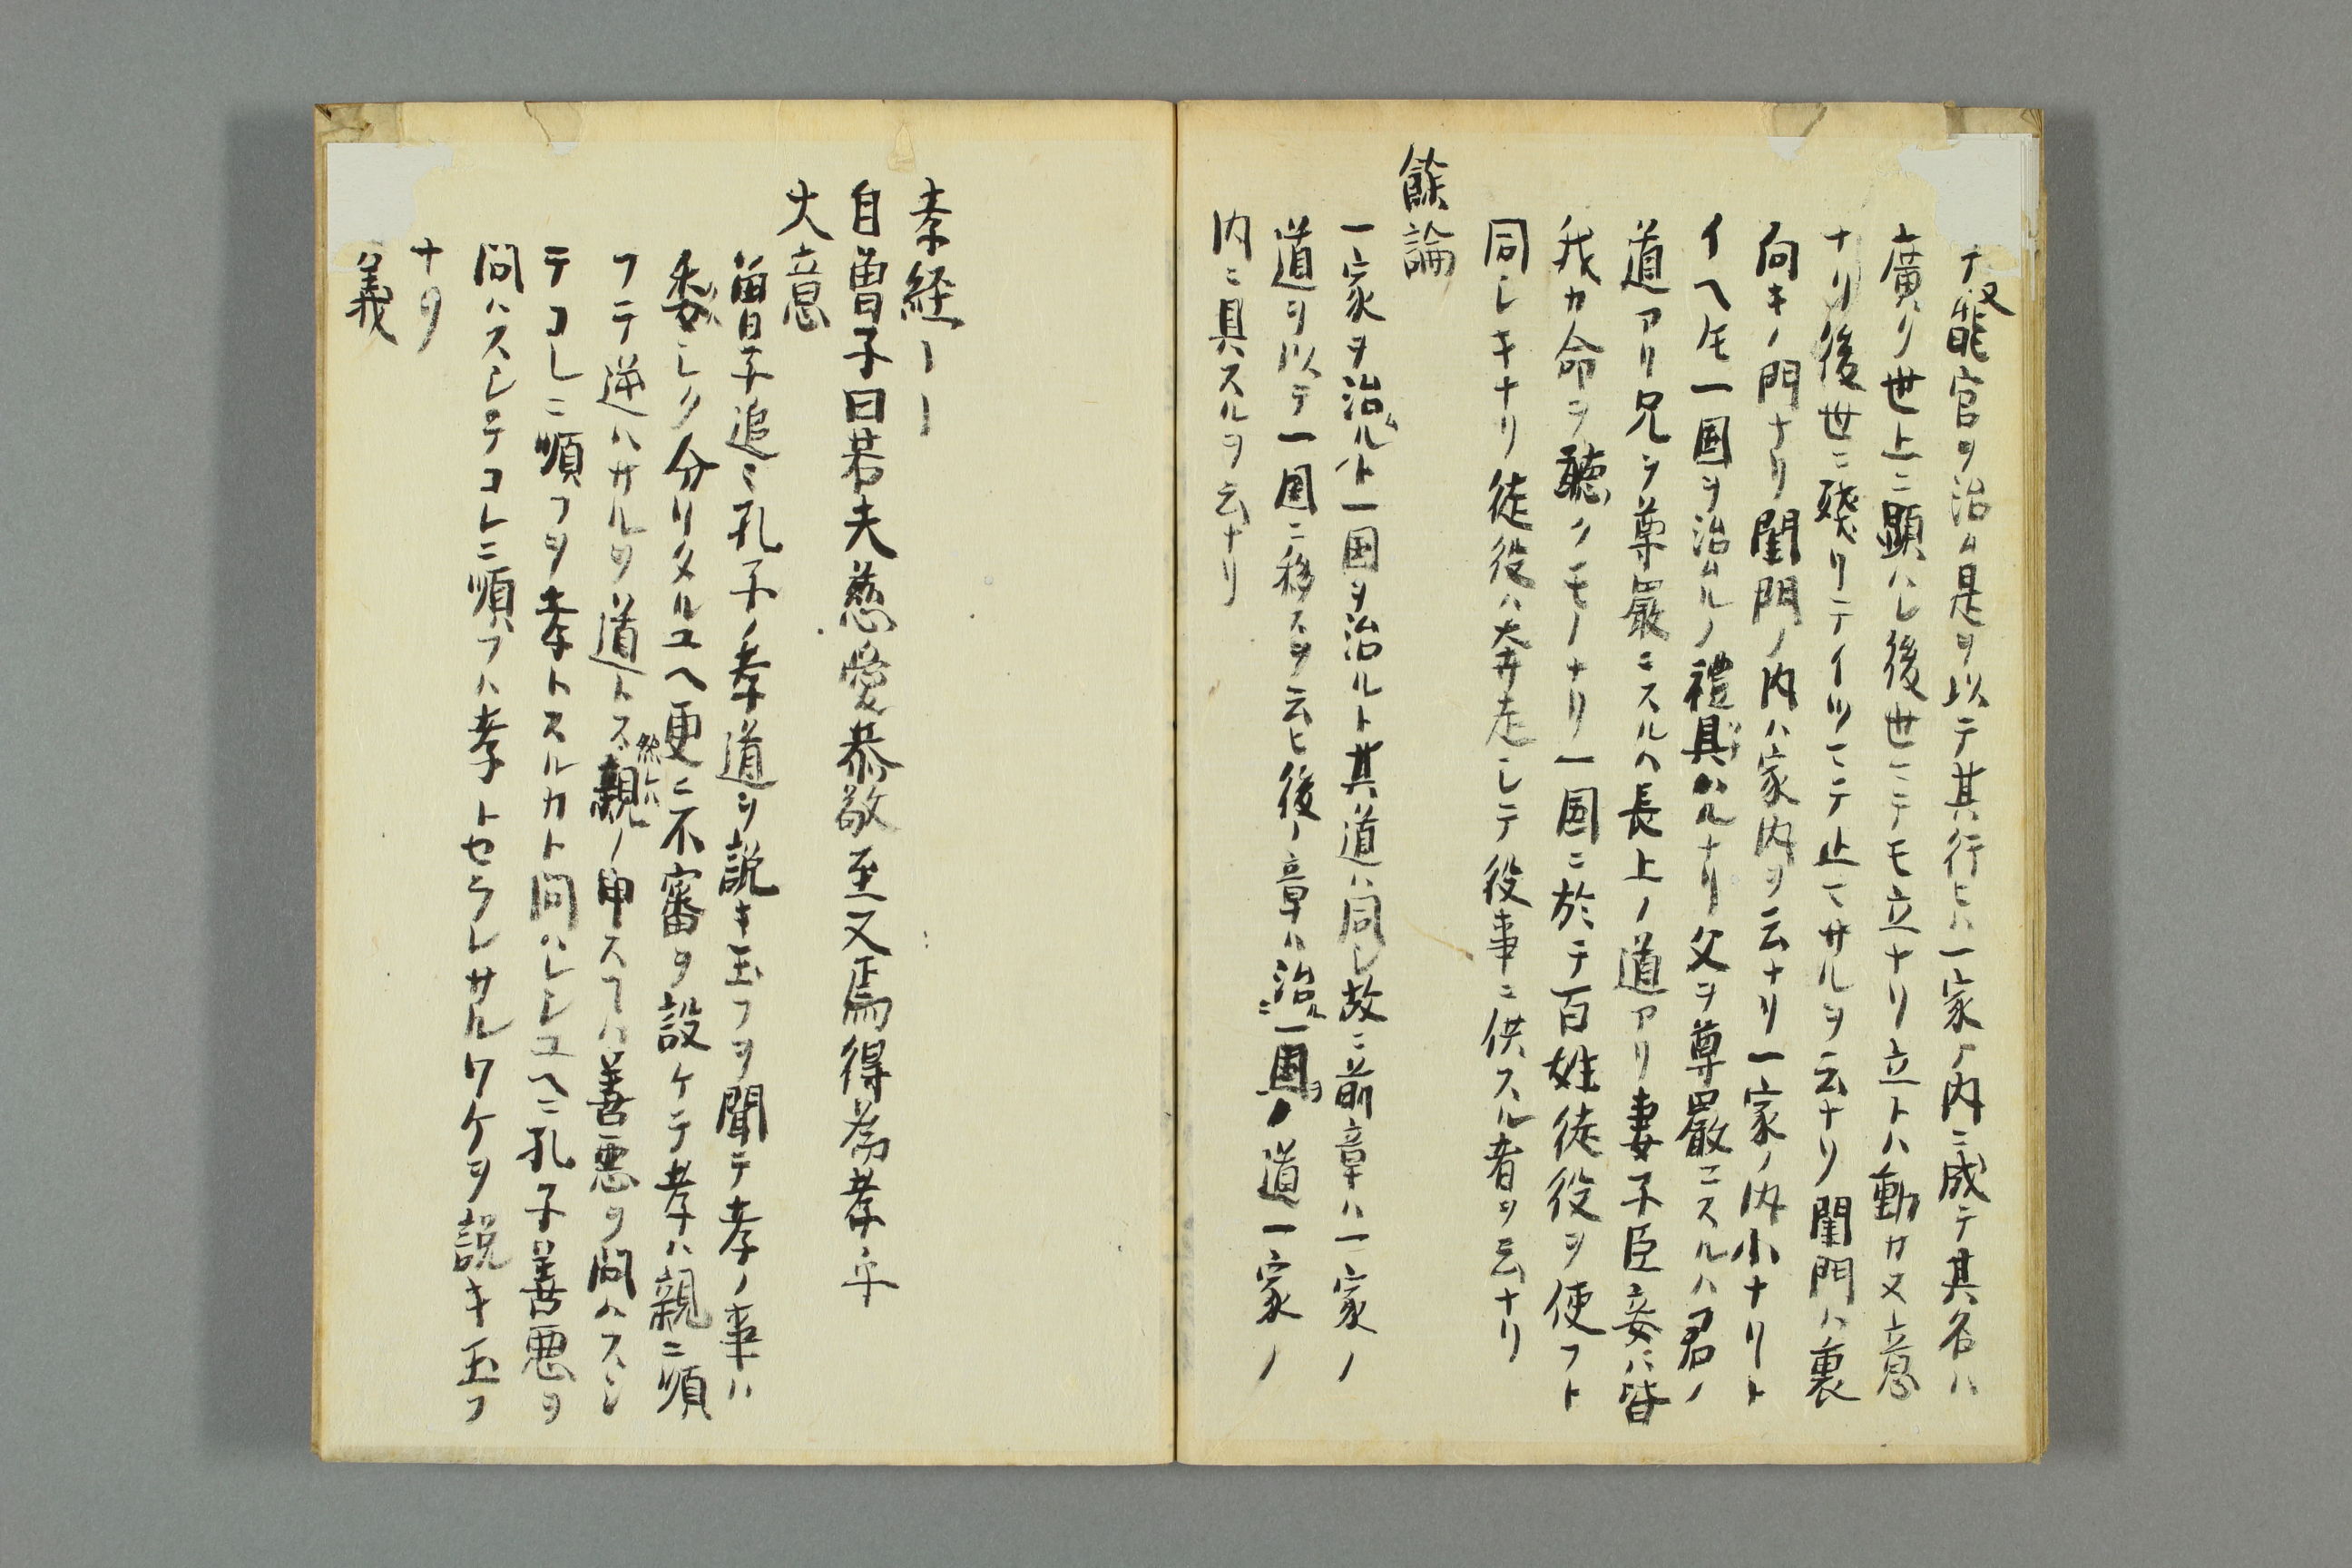 テ又能官ヲ治ム是ヲ以テ其行ヒハ一家ノ内ニ成テ其名ハ
廣ク世上ニ顕ハレ後世ニテモ立ナリ立トハ動カヌ意
ナリ後世ニ殘リテイツマテ止マサルヲ云ナリ閨門ハ裏
向キノ門ナリ閨門ノ内ハ家内ヲ云ナリ一家ノ内小ナリト
イヘ𪜈一国ヲ治ムルノ禮具ハルナリ父ヲ尊嚴ニスルハ君ノ
道アリ兄ヲ尊嚴ニスルハ長上ノ道アリ妻子臣妾ハ皆
我カ命ヲ聽クモノナリ一国ニ於テ百姓徒役ヲ使フト
同シキナリ徒役ハ奔走シテ役事ニ供スル者ヲ云ナリ
餘論
一家ヲ治ムルト一国ヲ治ルト其道ハ同シ故ニ前章ハ一家ノ
道ヲ以テ一国ニ移スヲ云ヒ後ノ章ハ治ルニ一国ヲノ道一家ノ
内ニ具スルヲ云ナリ
孝経ーー
自曽子曰若夫慈愛恭敬至又焉得為孝乎
大意
曽子追々孔子ノ孝道ヲ説キ玉フヲ聞テ孝ノ事ハ
委シク分リタルユヘ更ニ不審ヲ設ケテ孝ハ親ニ順
フテ逆ハサルヲ道トス然レハ親ノ申スヿハ善悪ヲ問ハスシ
テコレニ順フヲ孝トスルカト問ハレシユヘニ孔子善悪ヲ
問ハスシテコレニ順フハ孝トセラレサルワケヲ説キ玉フ
ナリ
義